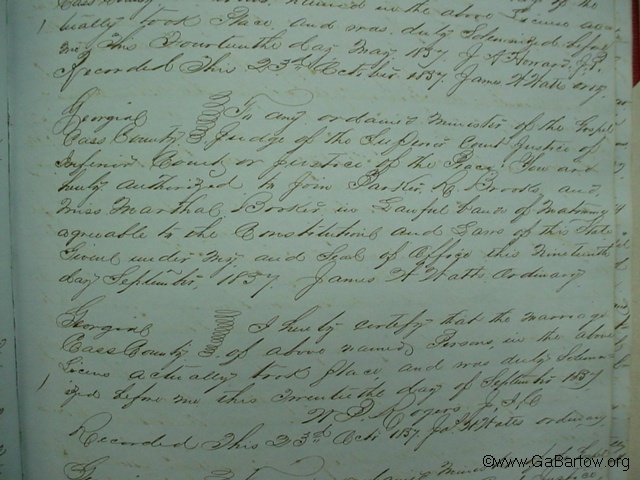 Cass County named in the above License ac
tually took Place and was duly Solemnized before
me This Fourteenth day May 1857. J. A. Howard, J.P.
Recorded This 23rd October 1857. James W Watts ordy.
Georgia To any ordained Minister of the Gospel
Cass County Judge of the Superior Court Justice of
Inferior Court or Justice of the Peace You are
hereby authorized to Join Parker, A. Brooks and
Miss Martha Booker in Lawful bands of Matrimony
agreeable to the Constitution and Laws of this State
Given under my and Seal of Office this Nineteenth
day September 1857. James W Watts Ordinary
Georgia I hereby certify that the marriage
Cass County of above named Persons, in the above
Licens actually took place and was duly Solemn
ized before me this Twentieth day of September 1857
Rogers J. I. C
Recorded This 23rd Oct. 1857. Jas. W Watts ordinary
©www.GaBartow.org